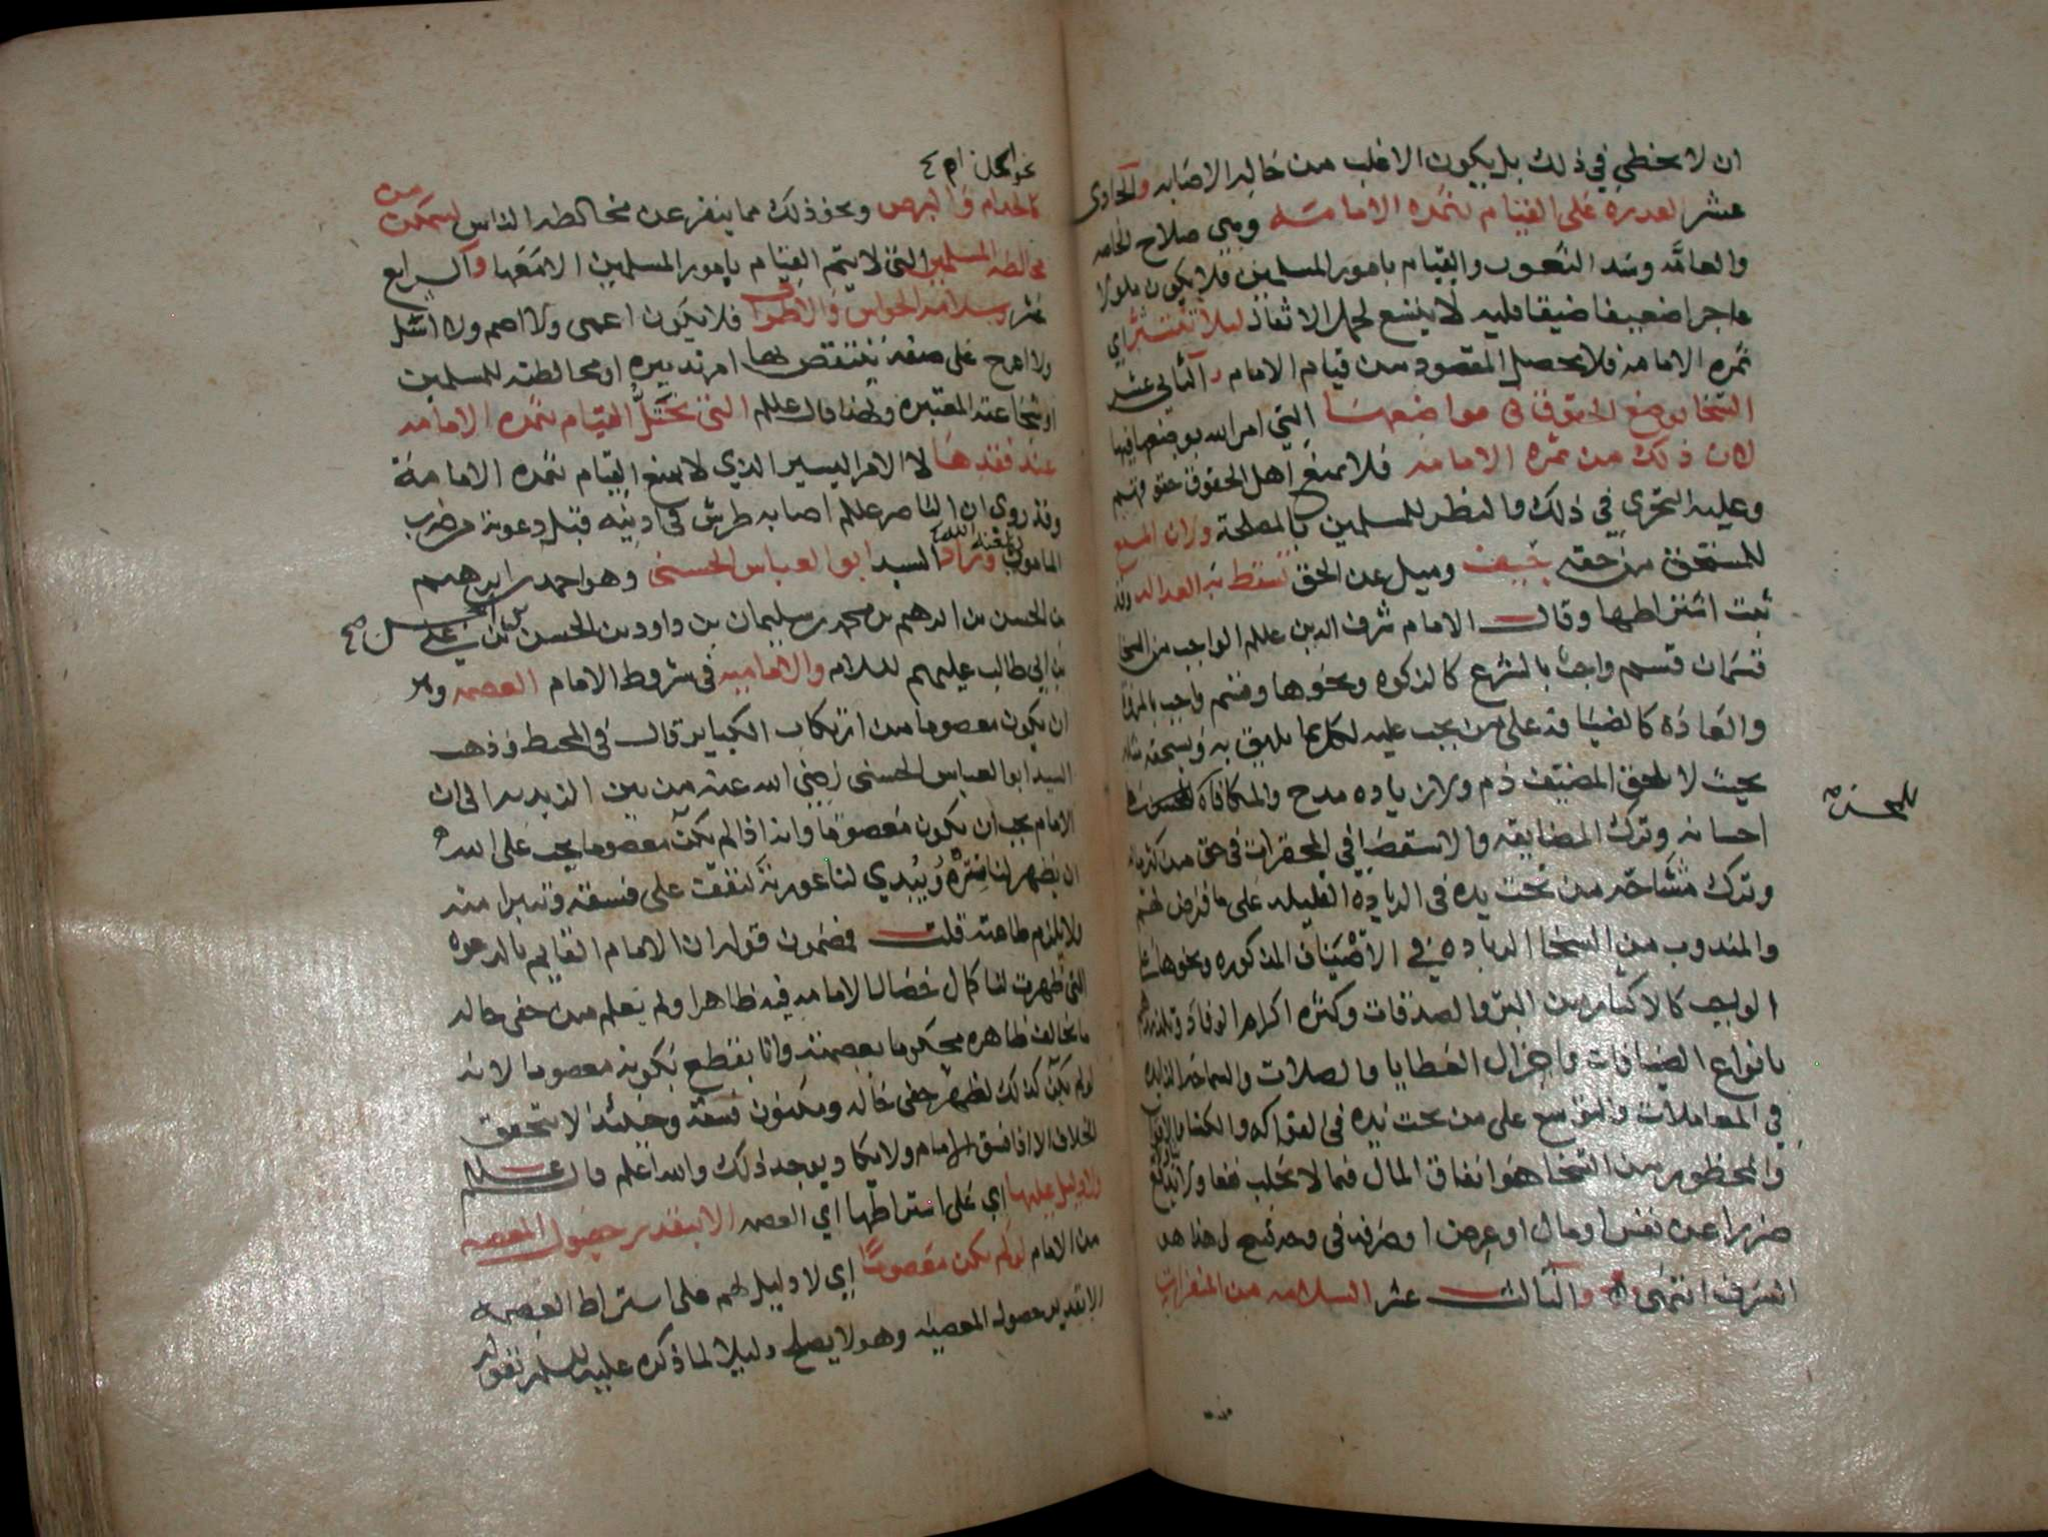 ان لا يخطي في ذلك بل يكون الاغلب من حاله الاصابه والحادي
عشر القدره على القيام بثمره الامامه وهي صلاح الخاصه
والعامه وسد الثغور والقيام بامور المسلمين فلا يكون ملولا
عاجرا ضعيفا ضيقا قلبه لا يتسع لحمل الاثقال ليلا تنتثر اي
ثمره الامامه فلا يحصل المقصود من قيام الامام والثاني عشر
السخا بوضع الحقوق في مواضعها التي امر الله بوضعها فيها
لان ذلك من ثمره الامامه فلا يمنع اهل الحقوق حقوقهم
وعليه التحري في ذلك والنظر للمسلمين بالمصلحة ولان المنع
للمستحق من حقه حيف وميل عن الحق تسقط به العداله وقد
ثبت اشتراطها وقال الامام شرف الدين عللم الواجب من السخا
قسمان قسم واجب بالشرع كالزكوه ونحوها وقسم واجب بالمروة
والعادة كالضيافه على من يجب عليه لكل بما يليق به ويستحقه
بحيث لا يلحق المضيف ذم ولا زياده مدح والمكافاة للمحسن
احسانه وترك المضايقه والاستقصا في المحقرات في حق من كثر ماله
وترك مشاححه من تحت يده في الزياده القليله على ما فرض لهم
والمندوب من السخا الزياده في الاضياف المذكوره ونحوها على
الواجب كالاكثار من البر والصدقات وكثره اكرام الوفاد
بانواع الضيافات واجزال العطايا والصلات والسماحه الزايده
في المعاملات والتوسع على من تحت يده في الفواكه والكفايه
والمحظور من السخا هو انفاق المال فيما لا يجلب نفعا ولا يدفع
ضررا عن نفس او مال او عرض او صرفه في وجه قبيح اذ هذا هو
السرف انتهى والثالث عشر السلامه من المنفرات
للمحسن صح
نحو الجذام
كالجذام والبرص ونحو ذلك مما ينفر عن مخالطه الناس ليتمكن من
مخالطه المسلمين التي لا يتم القيام بامور المسلمين الا معها والرابع
عشر سلامه الحواس والاطراف فلا يكون اعمى ولا اصم ولا اشل
ولا اعرج على صفه ينتقص بها امر تدبيره او مخالطته للمسلمين
او شجاعته المعتبره ولهذا قال عللم التي يختل القيام بثمره الامامه
عند فقدها لا الامر اليسير الذي لا يمنع القيام بثمره الامامة
وقد روي ان الناصر عللم اصابه طرش في اذنيه قبل دعوته من ضرب
المامون لعنه الله وزاد السيد ابو العباس الحسني وهو احمد بن ابرهيم
بن الحسن بن ابرهيم بن محمد بن سليمان بن داود بن الحسن بن الحسن بن علي صح
بن ابي طالب عليهم السلام والاماميه في شروط الامام العصمه وهو
ان يكون معصوما من ارتكاب الكباير قال في المحيط وذهب
السيد ابو العباس الحسني رضي الله عنه من بين الزيديه الى ان
الامام يجب ان يكون معصوما وانه اذا لم يكن معصوما يجب على الله
ان يظهر لنا ستره ويبدي لنا عورته لنقف على فسقه ونتبرا منه
ولا يلزم طاعته قلت فمضمون قوله ان الامام القايم بالدعوه
التي ظهرت لنا كمال خصال الامامه فيه ظاهرا ولم يعلم من خفي حاله
ما يخالف ظاهره محكوما بعصمته وانا نقطع بكونه معصوما لانه
لو لم يكن كذلك لظهر خفي حاله ومكنون فسقه وحينئذ لا يتحقق
الخلاف الا اذا فسق الامام ولا يكاد يوجد ذلك والله اعلم قال عللم
ولا دليل عليها اي على اشتراطها اي العصمه الا تقدير حصول المعصيه
من الامام لو لم يكن معصوما اي لا دليل لهم على اشتراط العصمه
الا تقدير حصول المعصيه وهو لا يصلح دليلا لما ذكره عليه السلام بقوله